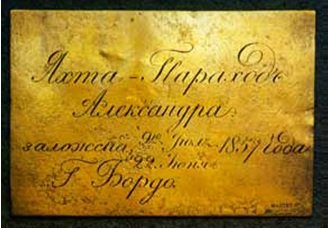 Яхта - Параходъ
Александра.
заложена 1857 Года
22 Iюня
Г. Бордо.